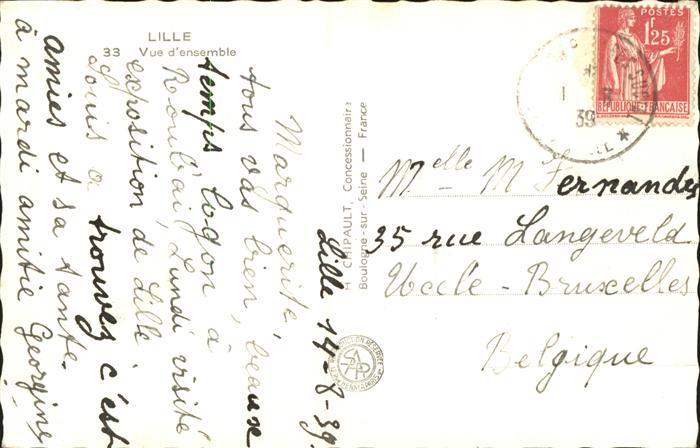 LILLE
33 Vue d'ensemble
Lille 14-8-39
Marguerite,
tous vas bien, beause
temps logon à
Roubaix, Lundi visité
exposition de Lille
Louis a trouvez c'est
amies et sa tante.
à mardi amitié Georgine
CHIPAULT, Concessionnaire
Boulogne-sur-Seine — France
POSTES
F
1,25
RÉPUBLIQUE FRANÇAISE
39
Melle M Fernandes
35 rue Langeveld
Uccle - Bruxelles
Belgique